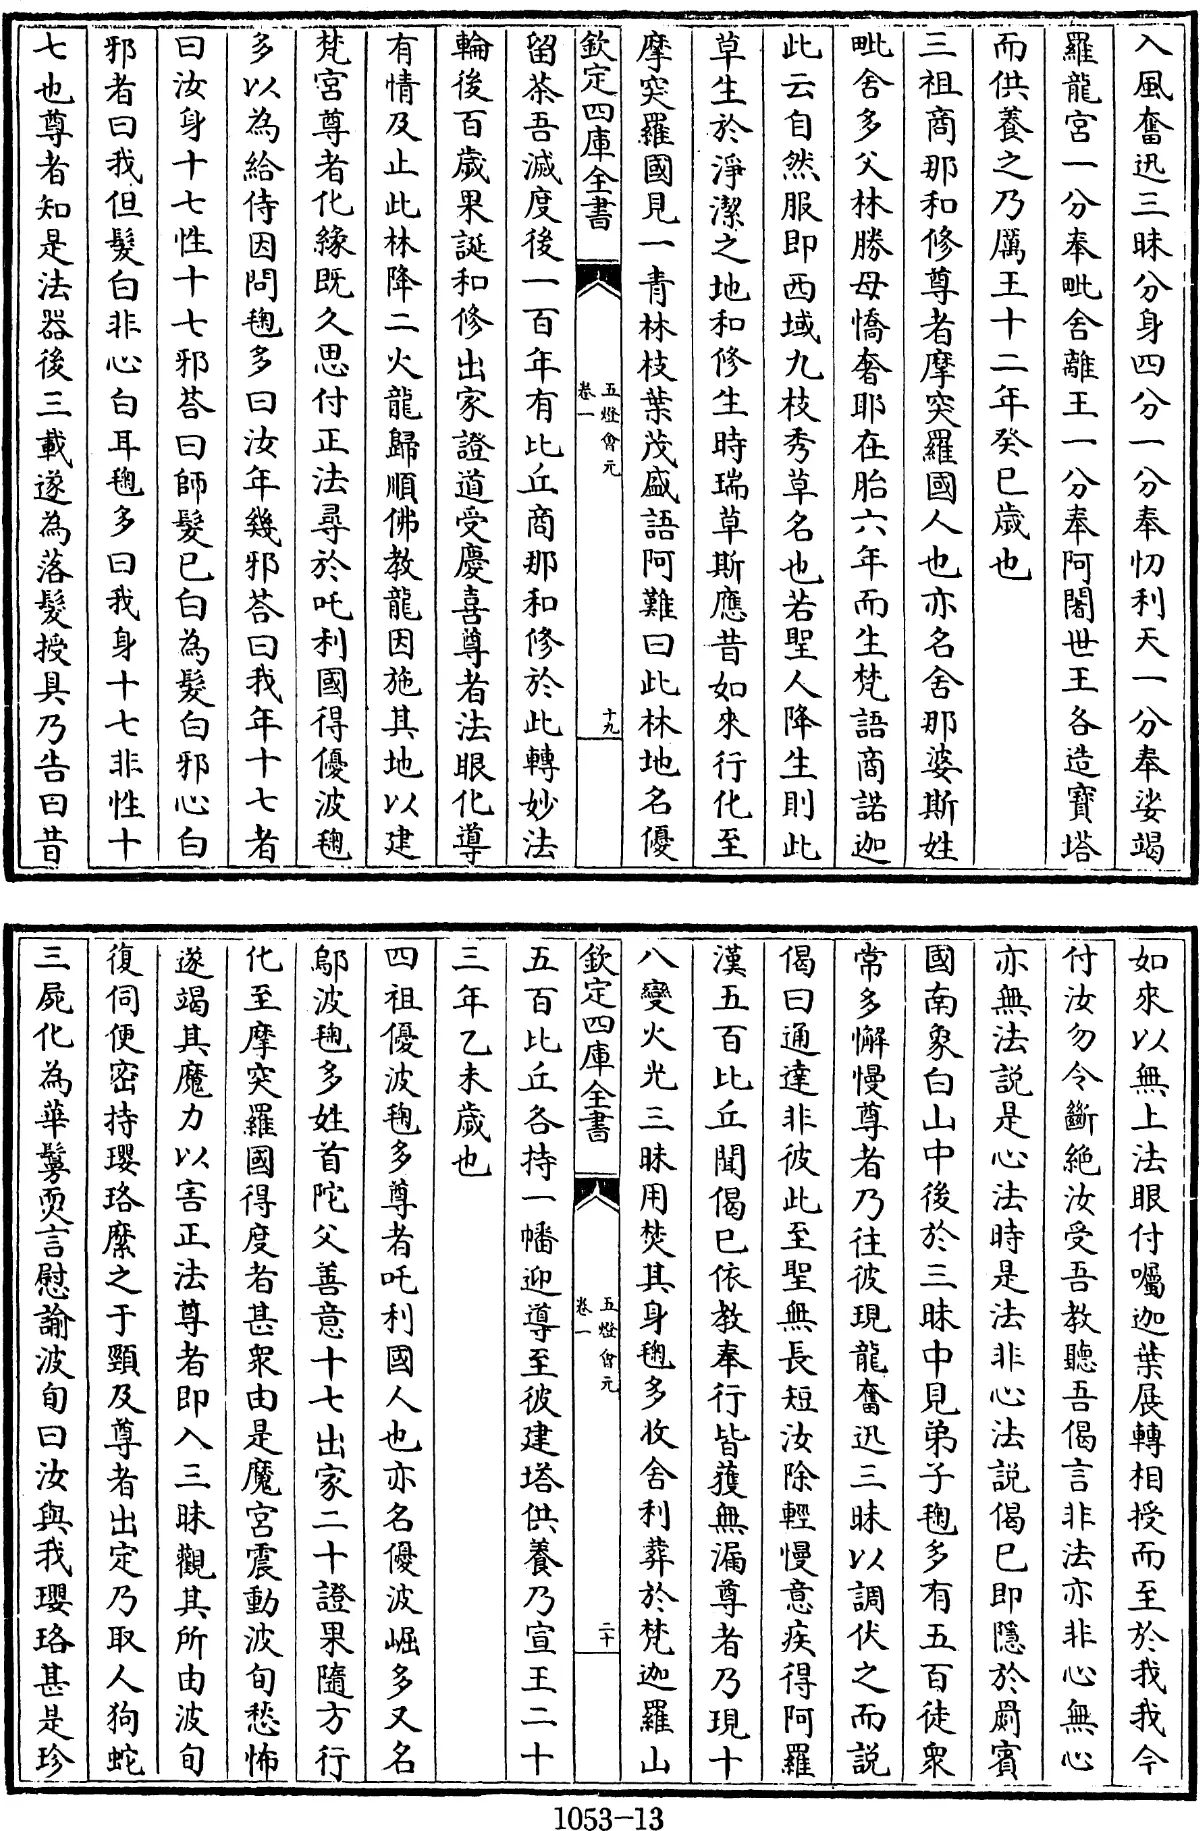 入風奮迅三昧分身四分一分奉忉利天一分奉娑竭
羅龍宮一分奉毗舍離王一分奉阿闍世王各造寶塔
而供養之乃厲王十二年癸巳歲也
三祖商那和修尊者摩突羅國人也亦名舍那婆斯姓
毗舍多父林勝母憍奢耶在胎六年而生梵語商諾迦
此云自然服即西域九枝秀草名也若聖人降生則此
草生於淨潔之地和修生時瑞草斯應昔如來行化至
摩突羅國見一青林枝葉茂盛語阿難曰此林地名優
欽定四庫全書
五燈會元
卷一
十九
留茶吾滅度後一百年有比丘商那和修於此轉妙法
輪後百歲果誕和修出家證道受慶喜尊者法眼化導
有情及止此林降二火龍歸順佛教龍因施其地以建
梵宮尊者化緣既久思付正法尋於吒利國得優波毱
多以為給侍因問毱多曰汝年幾邪荅曰我年十七者
曰汝身十七性十七邪荅曰師髮已白為髮白邪心白
邪者曰我但髮白非心白耳毱多曰我身十七非性十
七也尊者知是法器後三載遂為落髮授具乃告曰昔
如來以無上法眼付囑迦葉展轉相授而至於我我今
付汝勿令斷絕汝受吾教聽吾偈言非法亦非心無心
亦無法說是心法時是法非心法說偈已即隱於罽賓
國南象白山中後於三昧中見弟子毱多有五百徒衆
常多懈慢尊者乃往彼現龍奮迅三昧以調伏之而說
偈曰通達非彼此至聖無長短汝除輕慢意疾得阿羅
漢五百比丘聞偈已依教奉行皆獲無漏尊者乃現十
八變火光三昧用焚其身毱多收舍利葬於梵迦羅山
欽定四庫全書
五燈會元
卷一
二十
五百比丘各持一幡迎導至彼建塔供養乃宣王二十
三年乙未歲也
四祖優波毱多尊者吒利國人也亦名優波崛多又名
鄔波毱多姓首陀父善意十七出家二十證果隨方行
化至摩突羅國得度者甚衆由是魔宮震動波旬愁怖
遂竭其魔力以害正法尊者即入三昧觀其所由波旬
復伺便密持瓔珞縻之于頸及尊者出定乃取人狗蛇
三屍化為華鬘耎言慰諭波旬曰汝與我瓔珞甚是珍
1053-13